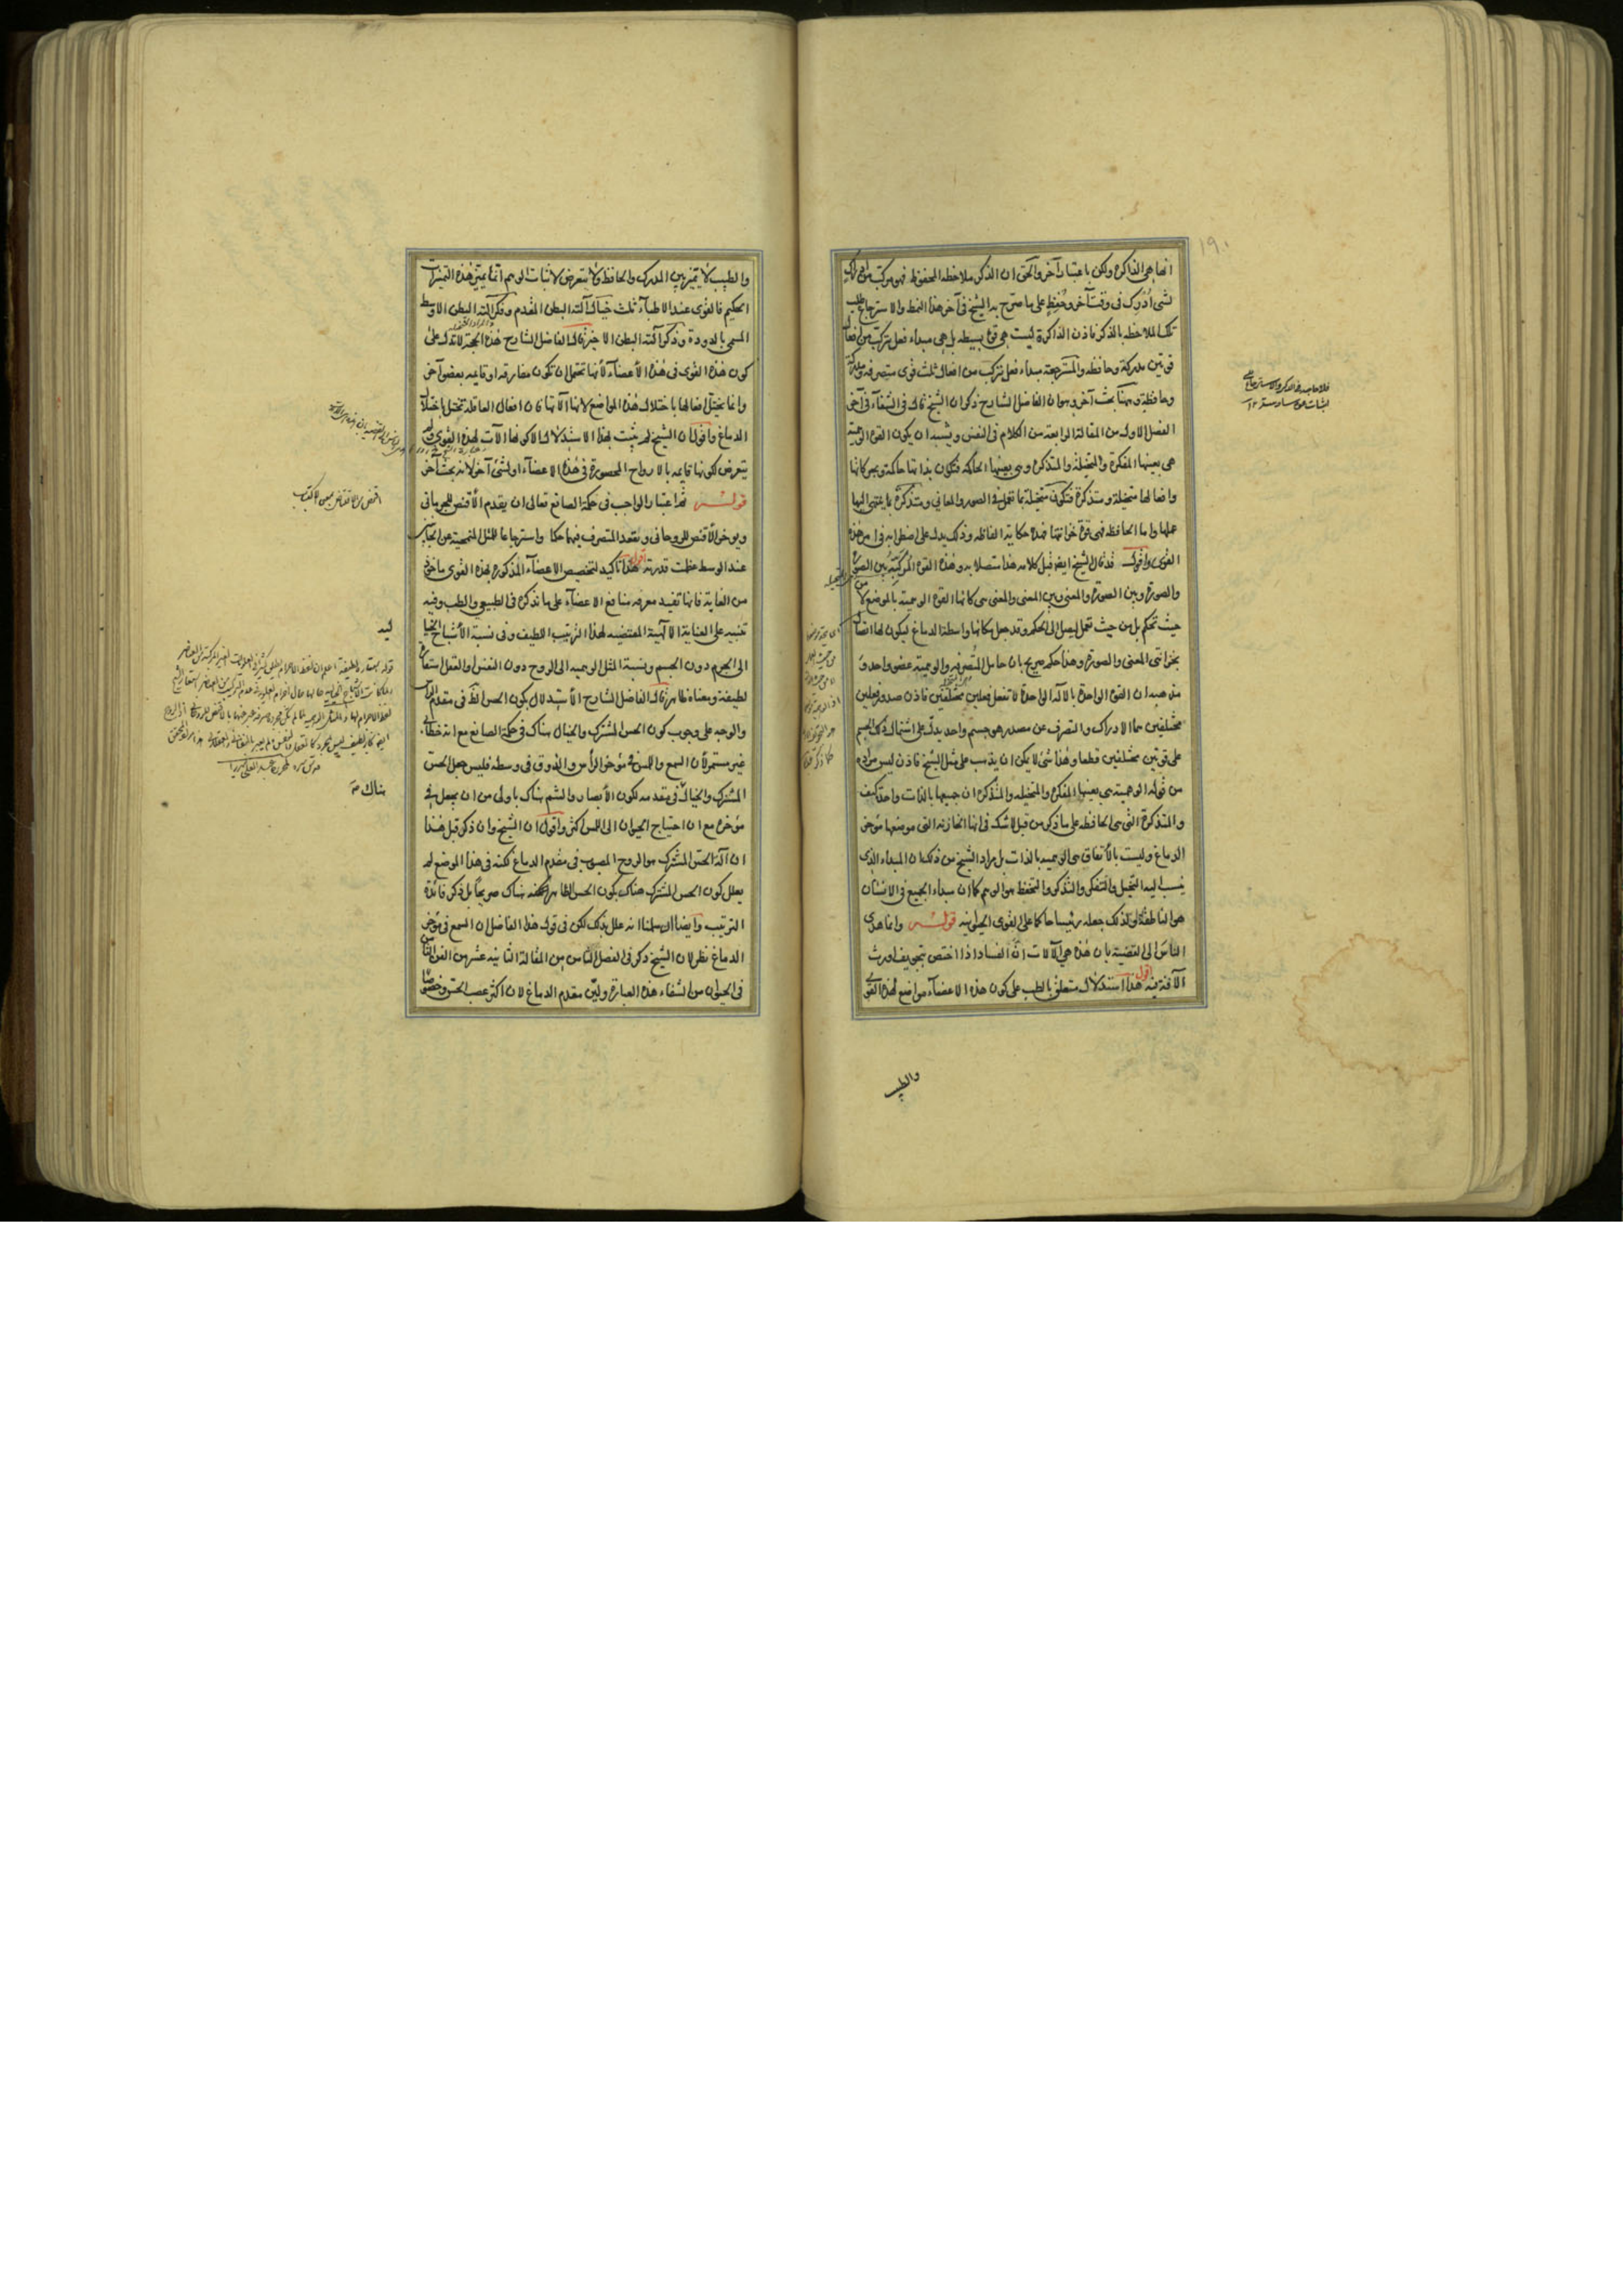 انها هى الذاكرة ولكن باعتبار آخر والحق ان الذكر ملاحظة المحفوظ فهو مركب من ادراك
لشئ اُدْرِك فى وقت آخر وحُفِظ على ما صرح به الشيخ فى آخر هذا النمط والاسترجاع طلب
تلك الملاحظة بالذكر فاذن الذاكرة ليست هى قوة بسيطة بل هى مبداء فعل يتركب من افعال
قوتين مدركة وحافظة والمسترجعة مبداء فعل يتركب من افعال ثلث قوى متصرفة ومدركة
وحافظة وههنا بحث آخر وهو ان الفاضل الشارح ذكر ان الشيخ قال فى الشفآء فى آخر
الفصل الاول من المقالة الرابعة من الكلام فى النفس ويشبه ان يكون القوة الوهمية
هى بعينها المفكرة والمتخيلة والمتذكرة وهى بعينها الحاكمة فتكون بذاتها حاكمة وبحركاتها
وافعالها متخيلة ومتذكرة فتكون متخيلة بما تعمل فى الصور والمعانى ومتذكرة بما ينتهى اليها
عملها واما الحافظة فهى قوة خزانتها فهذه حكاية الفاظه وذلك يدل على اضطرابه فى امر هذه
القوى واقول قد قال الشيخ ايضا قبل كلامه هذا متصلا به وهذه القوة المركبة بين الصورة
والصورة وبين الصورة والمعنى وبين المعنى والمعنى هى كانها القوة الوهمية بالموضع لا من
حيث تحكم بل من حيث تعمل ليصل الى الحكم وقد جعل مكانها واسطة الدماغ ليكون لها اتصال
بخزانتى المعنى والصورة وهذا حكم صريح بان حامل المتصرفة والوهمية عضو واحد و
مذهبه ان القوة الواحدة بالآلة الواحدة لا تفعل فعلين مختلفين فاذن صدور فعلين
مختلفين هما الادراك والتصرف عن مصدر هو جسم واحد يدل على اشتمال ذلك الجسم
على قوتين مختلفتين قطعا وهذا شئ لا يمكن ان يذهب على مثل الشيخ فاذن ليس مراده
من قوله الوهمية هى بعينها المفكرة والمتخيلة والمتذكرة ان جميعها بالذات واحد كيف
والمتذكرة التى هى الحافظة على ما ذكر من قبل لا شك فى انها الخازنة التى موضعها مؤخر
الدماغ وليست بالاتفاق هى الوهمية بالذات بل مراد الشيخ من ذلك ان المبداء الذى
ينسب اليه التخيل والتفكر والتذكر والتحفظ هو الوهم كما ان مبداء الجميع فى الانسان
هو الناطقة ولذلك جعله رئيسا حاكما على القوى الحيوانية قوله وانما هدى
الناس الى القضية بان هذه هى الآلات ان الفساد اذا اختص بتجويف اورث
الآفة فيه اقول هذا استدلال متعلق بالطب على كون هذه الاعضآء مواضع لهذه القوى
والطبيب
والطبيب لا يميز بين المدرك والحافظ ولا يتعرض لاثبات الوهم انما يميز هذه التميزات
الحكيم فالقوى عند الاطبآء ثلث خيال آلته البطن المقدم وفكر آلته البطن الاوسط
المسمى بالدودة وذكر آلته البطن الاخير قال الفاضل الشارح هذه الحجة لا تدل على
كون هذه القوى فى هذه الاعضآء لانها تحتمل ان تكون مفارقة او قايمة بعضو آخر
وانما يختل افعالها باختلال هذه المواضع لانها آلاتها كما ان افعال العاقلة تختل باختلال
الدماغ واقول ان الشيخ لم يثبت بهذا الاستدلال الا كونها آلات لهذه القوى ولم
يتعرض لكونها قايمة بالارواح المحصورة فى هذه الاعضآء او لشئ آخر لانه بحث آخر
قوله ثم اعتبار الواجب فى حكمة الصانع تعالى ان يقدم الاقنص للجرمانى
ويوخر الاقنص للروحانى ويقعد المتصرف فيهما حكما واسترجاعا للمثل المنمحية عن الجانبين
عند الوسط عظمت قدرته اقول هذا تاكيد لتخصيص الاعضآء المذكورة بهذه القوى ماخوذ
من الغاية فانها تفيد معرفة منافع الاعضآء على ما نذكره فى الطبيعى والطب وفيه
تنبيه على العناية الآلهية المقتضية لهذا الترتيب اللطيف وفى نسبة الاشباح الخيالية
الى الجرم دون الجسم ونسبة المثل الوهمية الى الروح دون النفس او العقل استعارة
لطيفة ومعناه ظاهر قال الفاضل الشارح الاستدلال بكون الحس الظاهر فى مقدم الدماغ
والوجه على وجوب كون الحس المشترك والخيال هناك فى حكمة الصانع مع انه خطآئى
غير مستمر لان السمع واللمس فى مؤخر الرأس والذوق فى وسطه فليس جعل الحس
المشترك والخيال فى مقدمه لكون الابصار والشم هناك باولى من ان يجعل فى
مؤخره مع ان احتياج الحيوان الى اللمس اكثر واقول ان الشيخ وان ذكر قبل هذا
ان آلة الحس المشترك هو الروح المصبوب فى مقدم الدماغ لكنه فى هذا الموضع لم
يعلل كون الحس المشترك هناك بكون الحس الظاهر هناك صريحا بل ذكر فائدة
الترتيب وايضا ان سلمنا انه علل بذلك لكن فى قول هذا الفاضل ان السمع فى مؤخر
الدماغ نظر لان الشيخ ذكر فى الفصل الثامن من المقالة الثانية عشر من الفن الثامن
فى الحيوان من الشفاء هذه العبارة ولين مقدم الدماغ لان اكثر عصب الحس وخصوصا
هناك